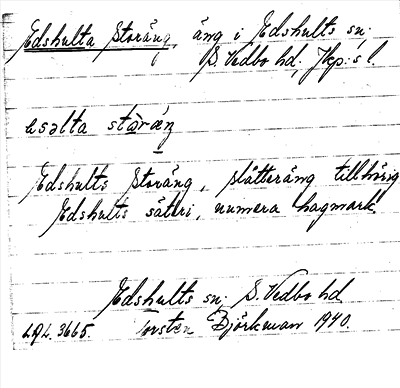 Edshulta Storäng, äng i Edshults sn;
S. Vedbo hd, Jkp:s l.
esəlta stòràŋ
Edshults Storäng, slåtteräng tillhörig
Edshults säteri, numera hagmark.
Edshults sn; S. Vedbo hd
Torsten Björkman 1940.